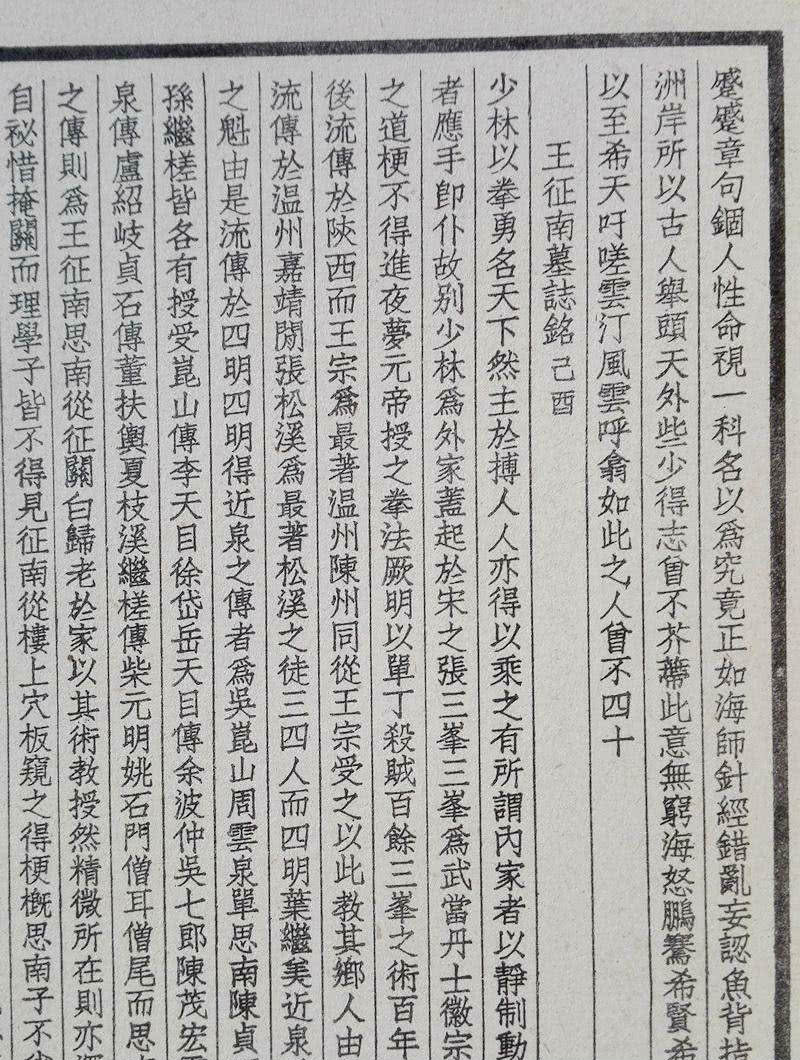 蹙蹙章句錮人性命視一科名以爲究竟正如海師針經錯亂妄認魚背指
洲岸所以古人舉頭天外些少得志曾不芥蔕此意無窮海怒鵬騫希賢希
以至希天吁嗟雲汀風雲呼翕如此之人曾不四十
王征南墓誌銘 己酉
少林以拳勇名天下然主於搏人人亦得以乘之有所謂內家者以靜制動
者應手卽仆故别少林爲外家蓋起於宋之張三峯三峯爲武當丹士徽宗
之道梗不得進夜夢元帝授之拳法厥明以單丁殺賊百餘三峯之術百年
後流傳於陝西而王宗爲最著温州陳州同從王宗受之以此教其鄉人由
流傳於温州嘉靖間張松溪爲最著松溪之徒三四人而四明葉繼美近泉
之魁由是流傳於四明四明得近泉之傳者爲吳崑山周雲泉單思南陳貞
孫繼槎皆各有授受崑山傳李天目徐岱岳天目傳余波仲吳七郎陳茂宏
泉傳盧紹岐貞石傳董扶輿夏枝溪繼槎傳柴元明姚石門僧耳僧尾而思
之傳則爲王征南思南從征關白歸老於家以其術教授然精微所在則亦
自祕惜掩關而理學子皆不得見征南從樓上穴板窺之得梗槪思南子不